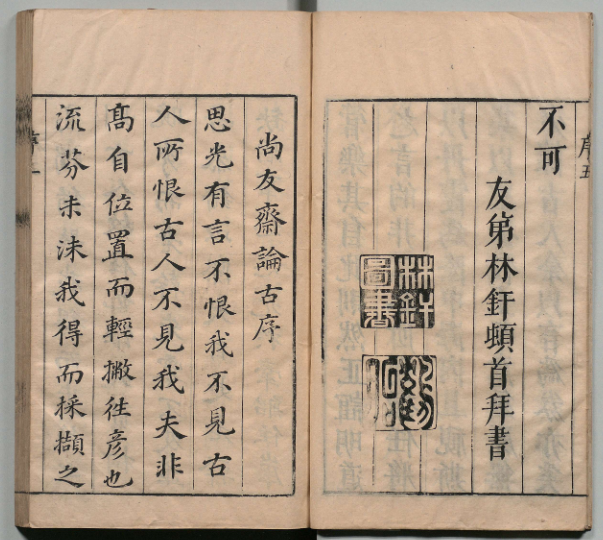 序五
不可
友第林釬頓首拜書
林釬
圖書
尚友齋論古序
思光有言不恨我不見古
人所恨古人不見我夫非
髙自位置而輕撇徃彦也
流芬未沬我得而採擷之
序一